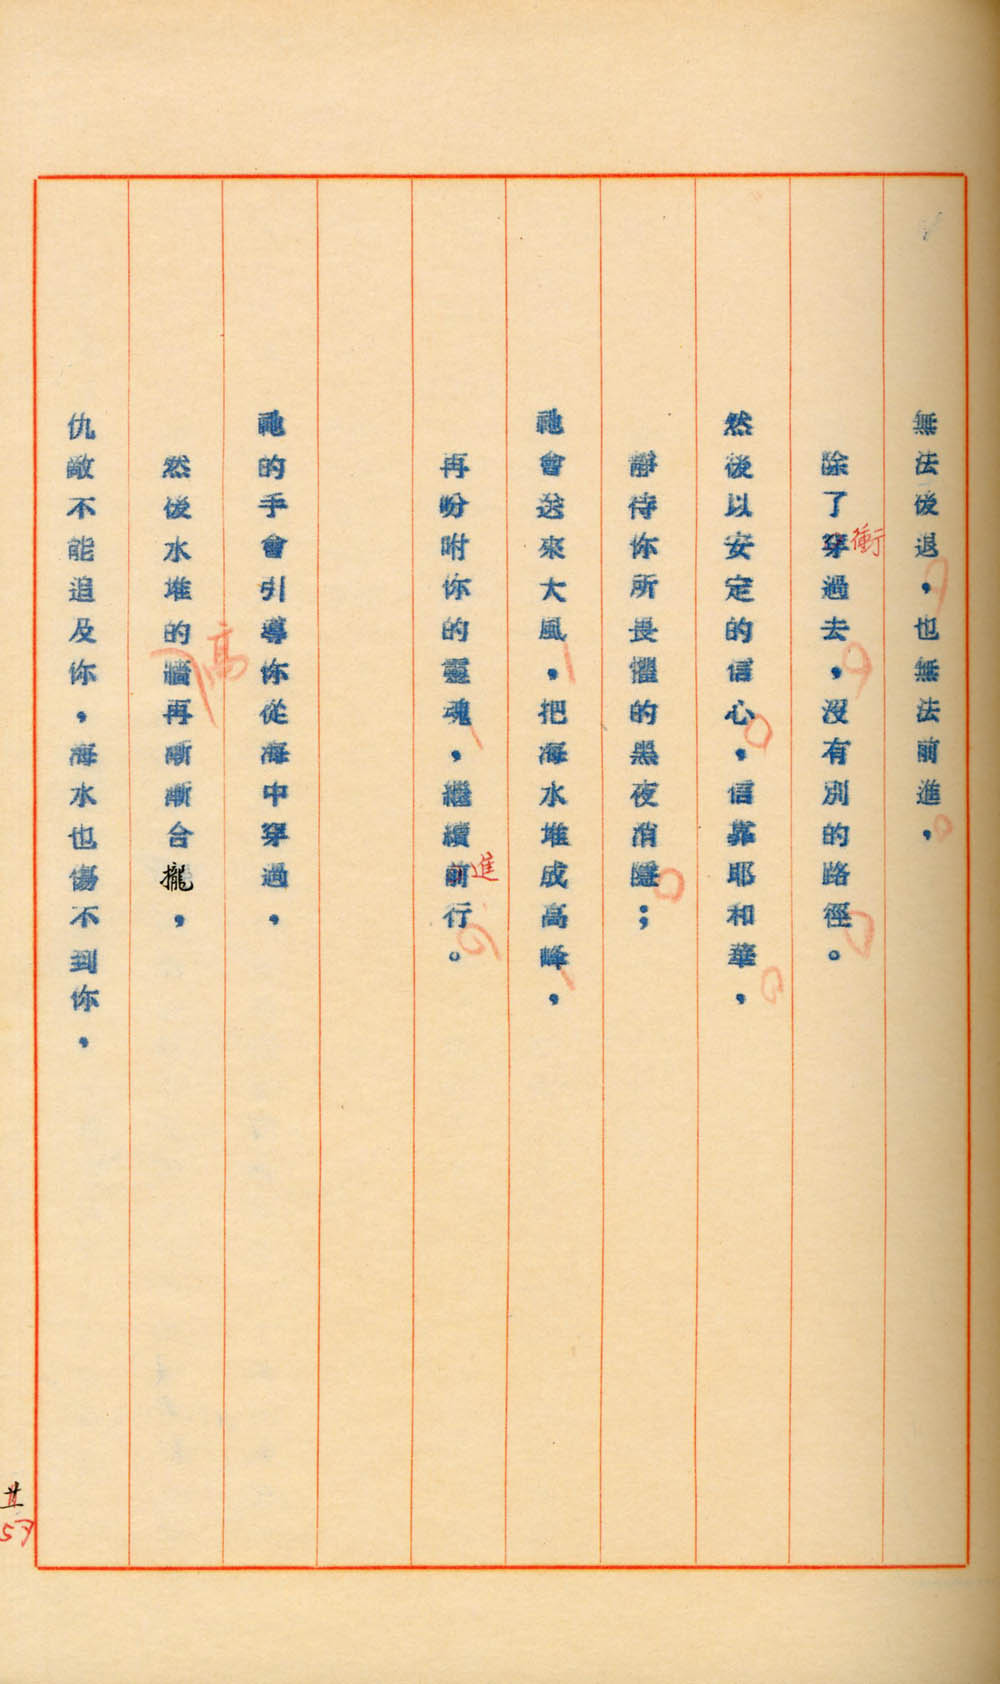 無法後退，也無法前進，
除了穿過去，沒有別的路徑。
衝
然後以安定的信心，信靠耶和華，
靜待你所畏懼的黑夜消隱；
祂會送來大風，把海水堆成高峰，
再吩咐你的靈魂，繼續前行。
進
祂的手會引導你從海中穿過，
然後水堆的牆再漸漸合攏，
高
仇敵不能追及你，海水也傷不到你，
廿
57